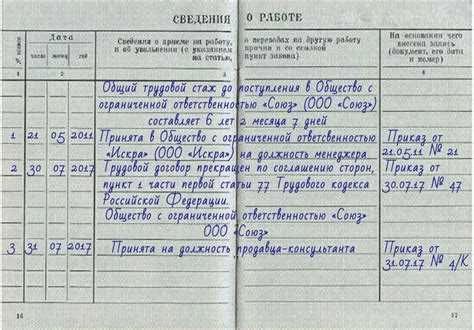 СВЕДЕНИЯ О РАБОТЕ
№ записи
Дата
число месяц год
Сведения о приеме на работу, о переводах на другую работу
и об увольнении (с указанием причин и со ссылкой
на статью, пункт закона)
На основании чего
внесена запись
(документ, его дата
и номер)
1 2 3 4
Общий трудовой стаж до поступления в Общество с
ограниченной ответственностью «Союз» (ООО «Союз»)
составляет 6 лет 2 месяца 7 дней
1 21 05 2011 Принята в Общество с ограниченной ответсвенностью
«Искра» (ООО «Искра») на должность менеджера
Приказ от
21.05.11 № 21
2 30 07 2017 Трудовой договор прекращен по соглашению сторон,
пункт 1 части первой статьи 77 Трудового кодекса
Российской Федерации.
Приказ от
30.07.17 № 47
Общество с ограниченной ответственностью «Союз»
ООО «Союз»
3 31 07 2017 Принята на должность продавца-консультанта
Приказ от
31.07.17 № 4/К
16
17